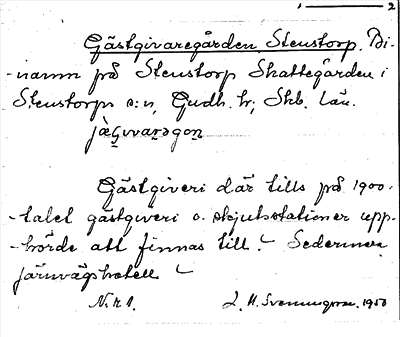 2
Gästgivaregården Stenstorp. Bi-
-namn på Stenstorp Skattegården i
Stenstorps s:n, Gudh. h; Skb. län.
Gästgiveri där tills på 1900-
-talet gästgiveri o. skjutsstationer upp-
-hörde att finnas till. Sedermera
järnvägshotell
1950